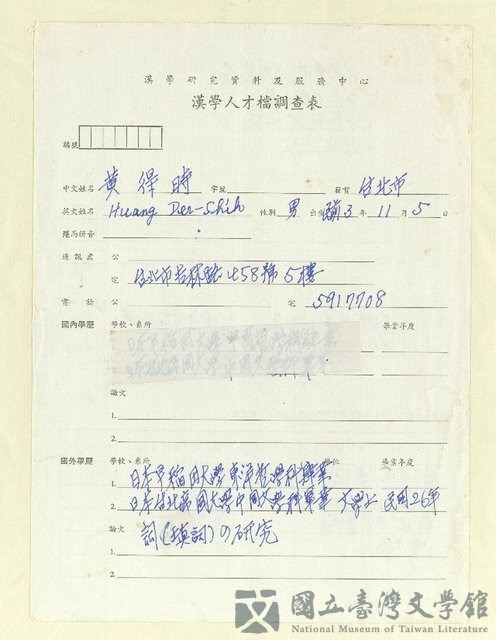 漢學研究資料及服務中心
漢學人才檔調查表
編號
中文姓名 黃得時 字號 籍貫 台北市
英文姓名 Huang Der-Shih 性別 男 出生 前3年11月5日
羅馬拼音
通訊處 公
宅 台北市吉林路458號5樓
電話 公 宅 5917708
國內學歷 學校、系所 畢業年度
論文
1.
2.
國外學歷 學校、系所 學位 畢業年度
1. 日本早稻田大學東洋哲學科畢業
2. 日本台北帝國大學中國文學科畢業 文學士 民國26年
論文 詞(填詞)の研究
1.
2.
國立臺灣文學館
National Museum of Taiwan Literature